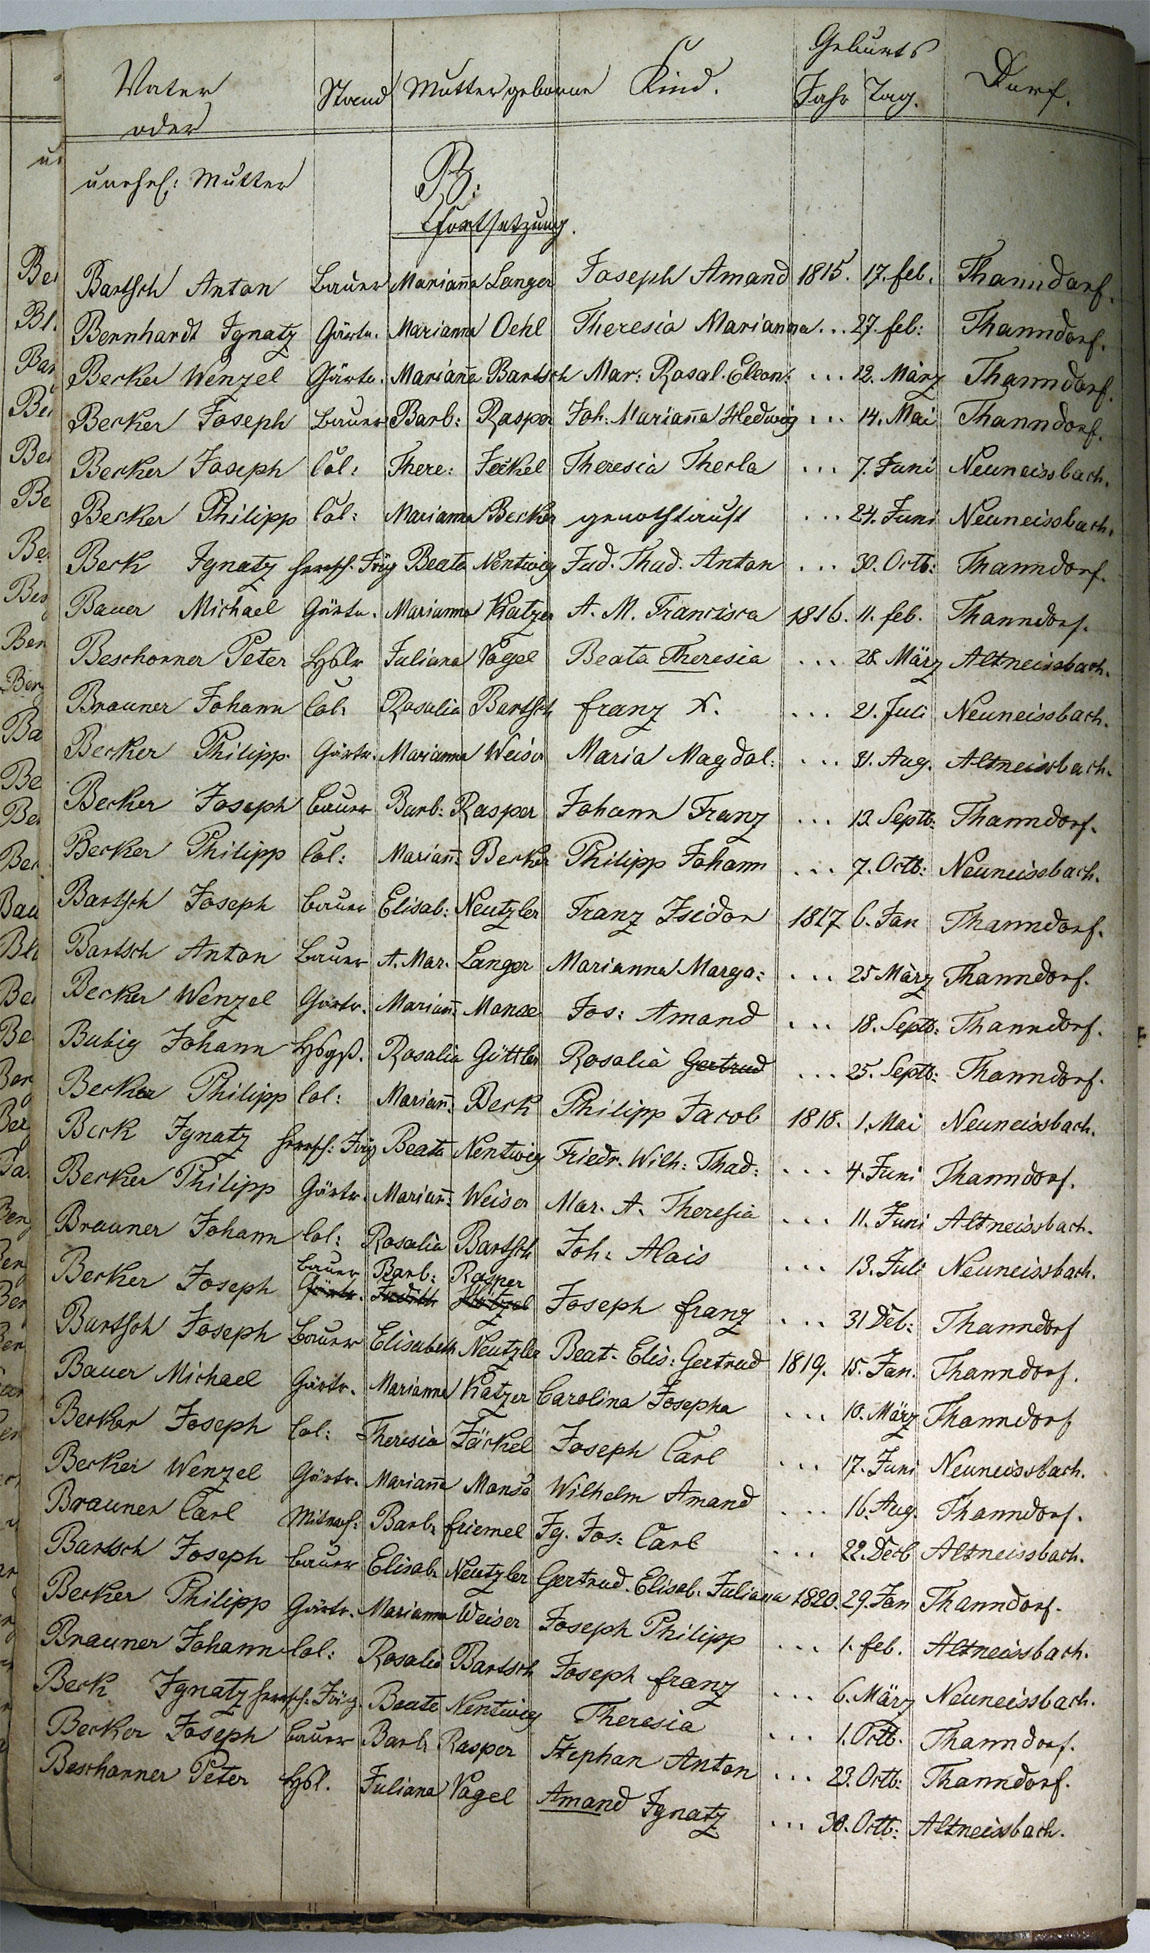 Geburts
Vater Stand Mutter geborne Kind. Jahr Tag. Dorf.
oder
unehel: Mutter
B:
Fortsetzung.
Bartsch Anton Bauer Mariana Langer Joseph Amand 1815. 17. feb. Thanndorf.
Bernhardt Ignatz Gärtn. Marianna Oehl Theresia Marianna ... 27. feb: Thanndorf.
Becker Wenzel Gärtn. Mariana Bartsch Mar: Rosal. Eleon: ... 12. März Thanndorf.
Becker Joseph Bauer Barb: Rasper Joh. Mariana Hedwig ... 14. Mai Thanndorf.
Becker Joseph Col: There: Jeckel Theresia Thecla ... 7. Juni Neuneissbach.
Becker Philipp Col: Marianna Becker genothtauft ... 24. Juni Neuneissbach.
Beck Ignatz herrsch. Jäg Beata Nentwig Jud. Thad. Anton ... 30. Octb: Thanndorf.
Bauer Michael Gärtn. Marianna Katzer A. M. Francisca 1816. 11. feb. Thanndorf.
Beschorner Peter Hslr Juliana Vogel Beata Theresia ... 28. März Altneissbach.
Brauner Johann Col: Rosalia Bartsch franz X. ... 21. Juli Neuneissbach.
Becker Philipp. Gärtn. Marianna Weiser Maria Magdal: ... 31. Aug. Altneissbach.
Becker Joseph Bauer Barb: Rasper Johann Franz ... 13. Septb: Thanndorf.
Becker Philipp Col: Mariann: Becker Philipp Johann ... 7. Octb: Neuneissbach.
Bartsch Joseph Bauer Elisab: Neutzler Franz Isidor 1817 6. Jan Thanndorf.
Bartsch Anton Bauer A. Mar. Langer Marianna Marga: ... 25 März Thanndorf.
Becker Wenzel Gärtr. Mariann: Manse Jos: Amand ... 18. Septb: Thanndorf.
Bubig Johann Rosalia Güttler Rosalia Gertrud ... 25. Septb: Thanndorf.
Becker Philipp Col: Mariann: Beck Philipp Jacob 1818. 1. Mai Neuneissbach.
Beck Ignatz herrsch: Jäg Beata Nentwig Friedr. Wilh: Thad: ... 4. Juni Thanndorf.
Becker Philipp Gärtr. Mariann: Weiser Mar. A. Theresia ... 11. Juni Altneissbach.
Brauner Johann Col: Rosalia Bartsch Joh: Alois ... 13. Juli Neuneissbach.
Bauer Barb: Rasper
Becker Joseph Gärtr. Judith Hötzel Joseph franz ... 31 Deb: Thanndorf
Bartsch Joseph Bauer Elisabeth Neutzler Beat. Elis: Gertrud 1819. 15. Jan: Thanndorf.
Bauer Michael Gärtr. Marianna Katzer Carolina Josepha ... 10. März Thanndorf
Becker Joseph Col: Theresia Jäckel Joseph Carl ... 17. Juni Neuneissbach.
Becker Wenzel Gärtr. Mariana Manse Wilhelm Amand ... 16. Aug. Thanndorf.
Brauner Carl Barb: friemel Ig. Jos: Carl ... 22. Decb Altneissbach.
Bartsch Joseph Bauer Elisab. Neutzler Gertrud. Elisab. Juliana 1820. 29. Jan Thanndorf.
Becker Philipp Gärtr. Marianna Weiser Joseph Philipp ... 1. feb. Altneissbach.
Brauner Johann Col: Rosalia Bartsch Joseph franz ... 6. März Neuneissbach.
Beck Ignatz herrsch. Jäg. Beata Nentwig Theresia ... 1. Octb. Thanndorf.
Becker Joseph Bauer Barb: Rasper Stephan Anton ... 23. Octb: Thanndorf.
Beschorner Peter Hsl. Juliana Vogel Amand Ignatz ... 30. Octb: Altneissbach.